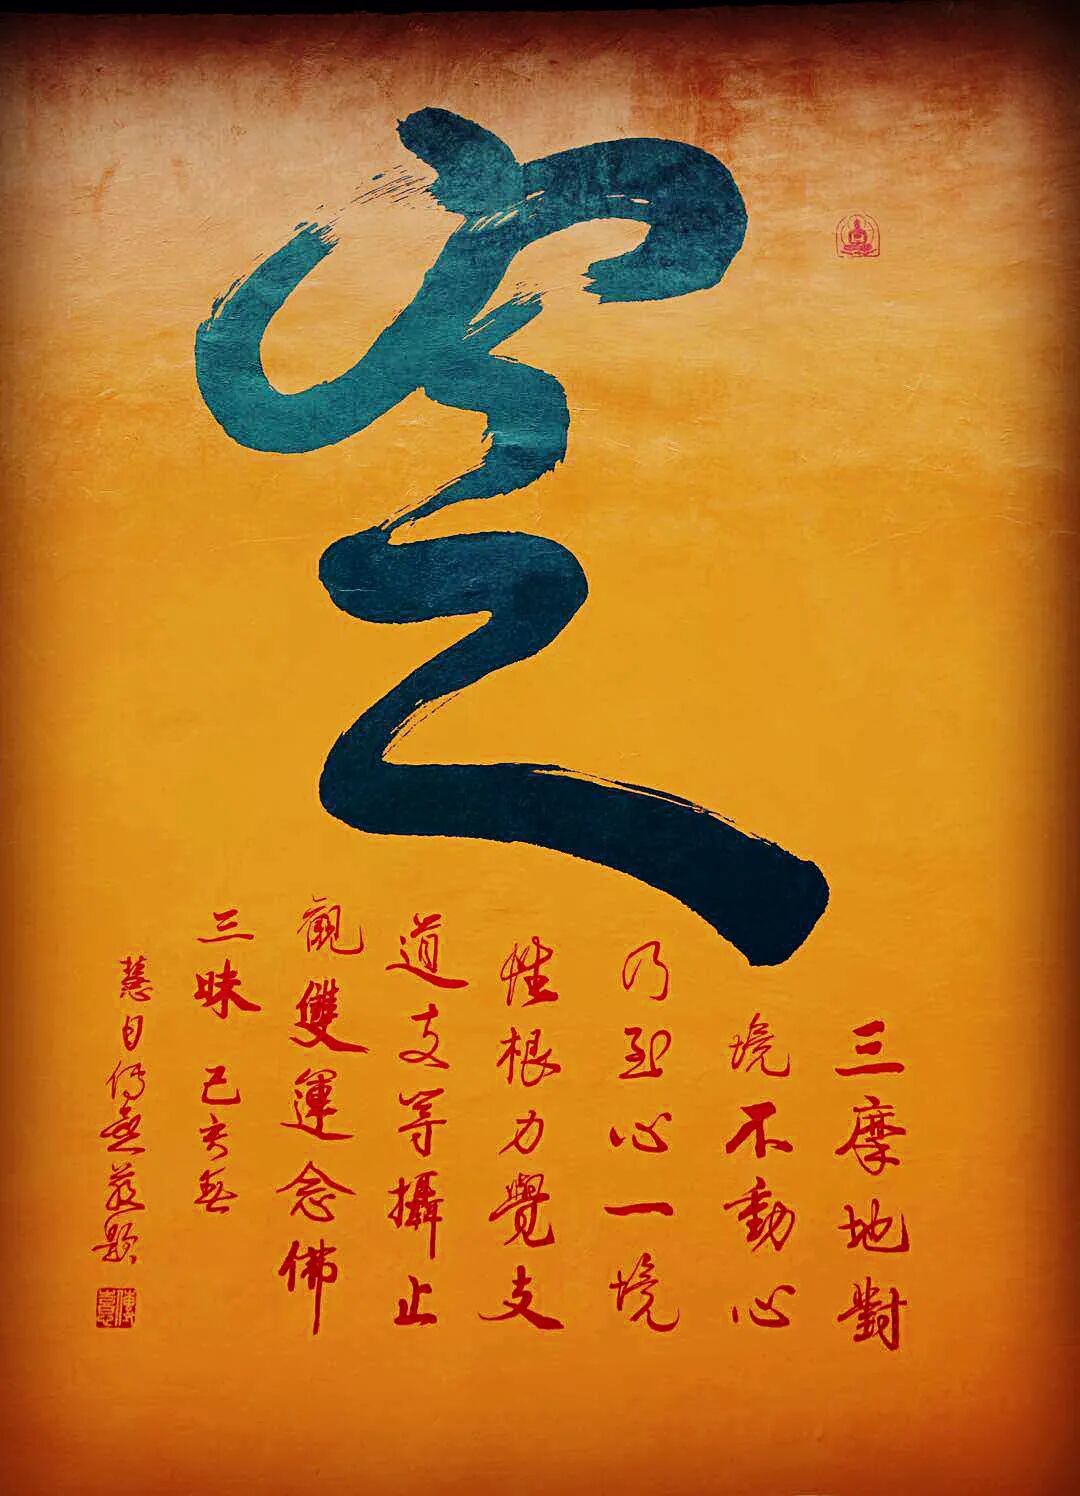 三摩地對
境不動心
乃至心一境
性根力覺支
道支等攝止
觀雙運念佛
三昧 己亥
慧日傳喜 題
傳喜